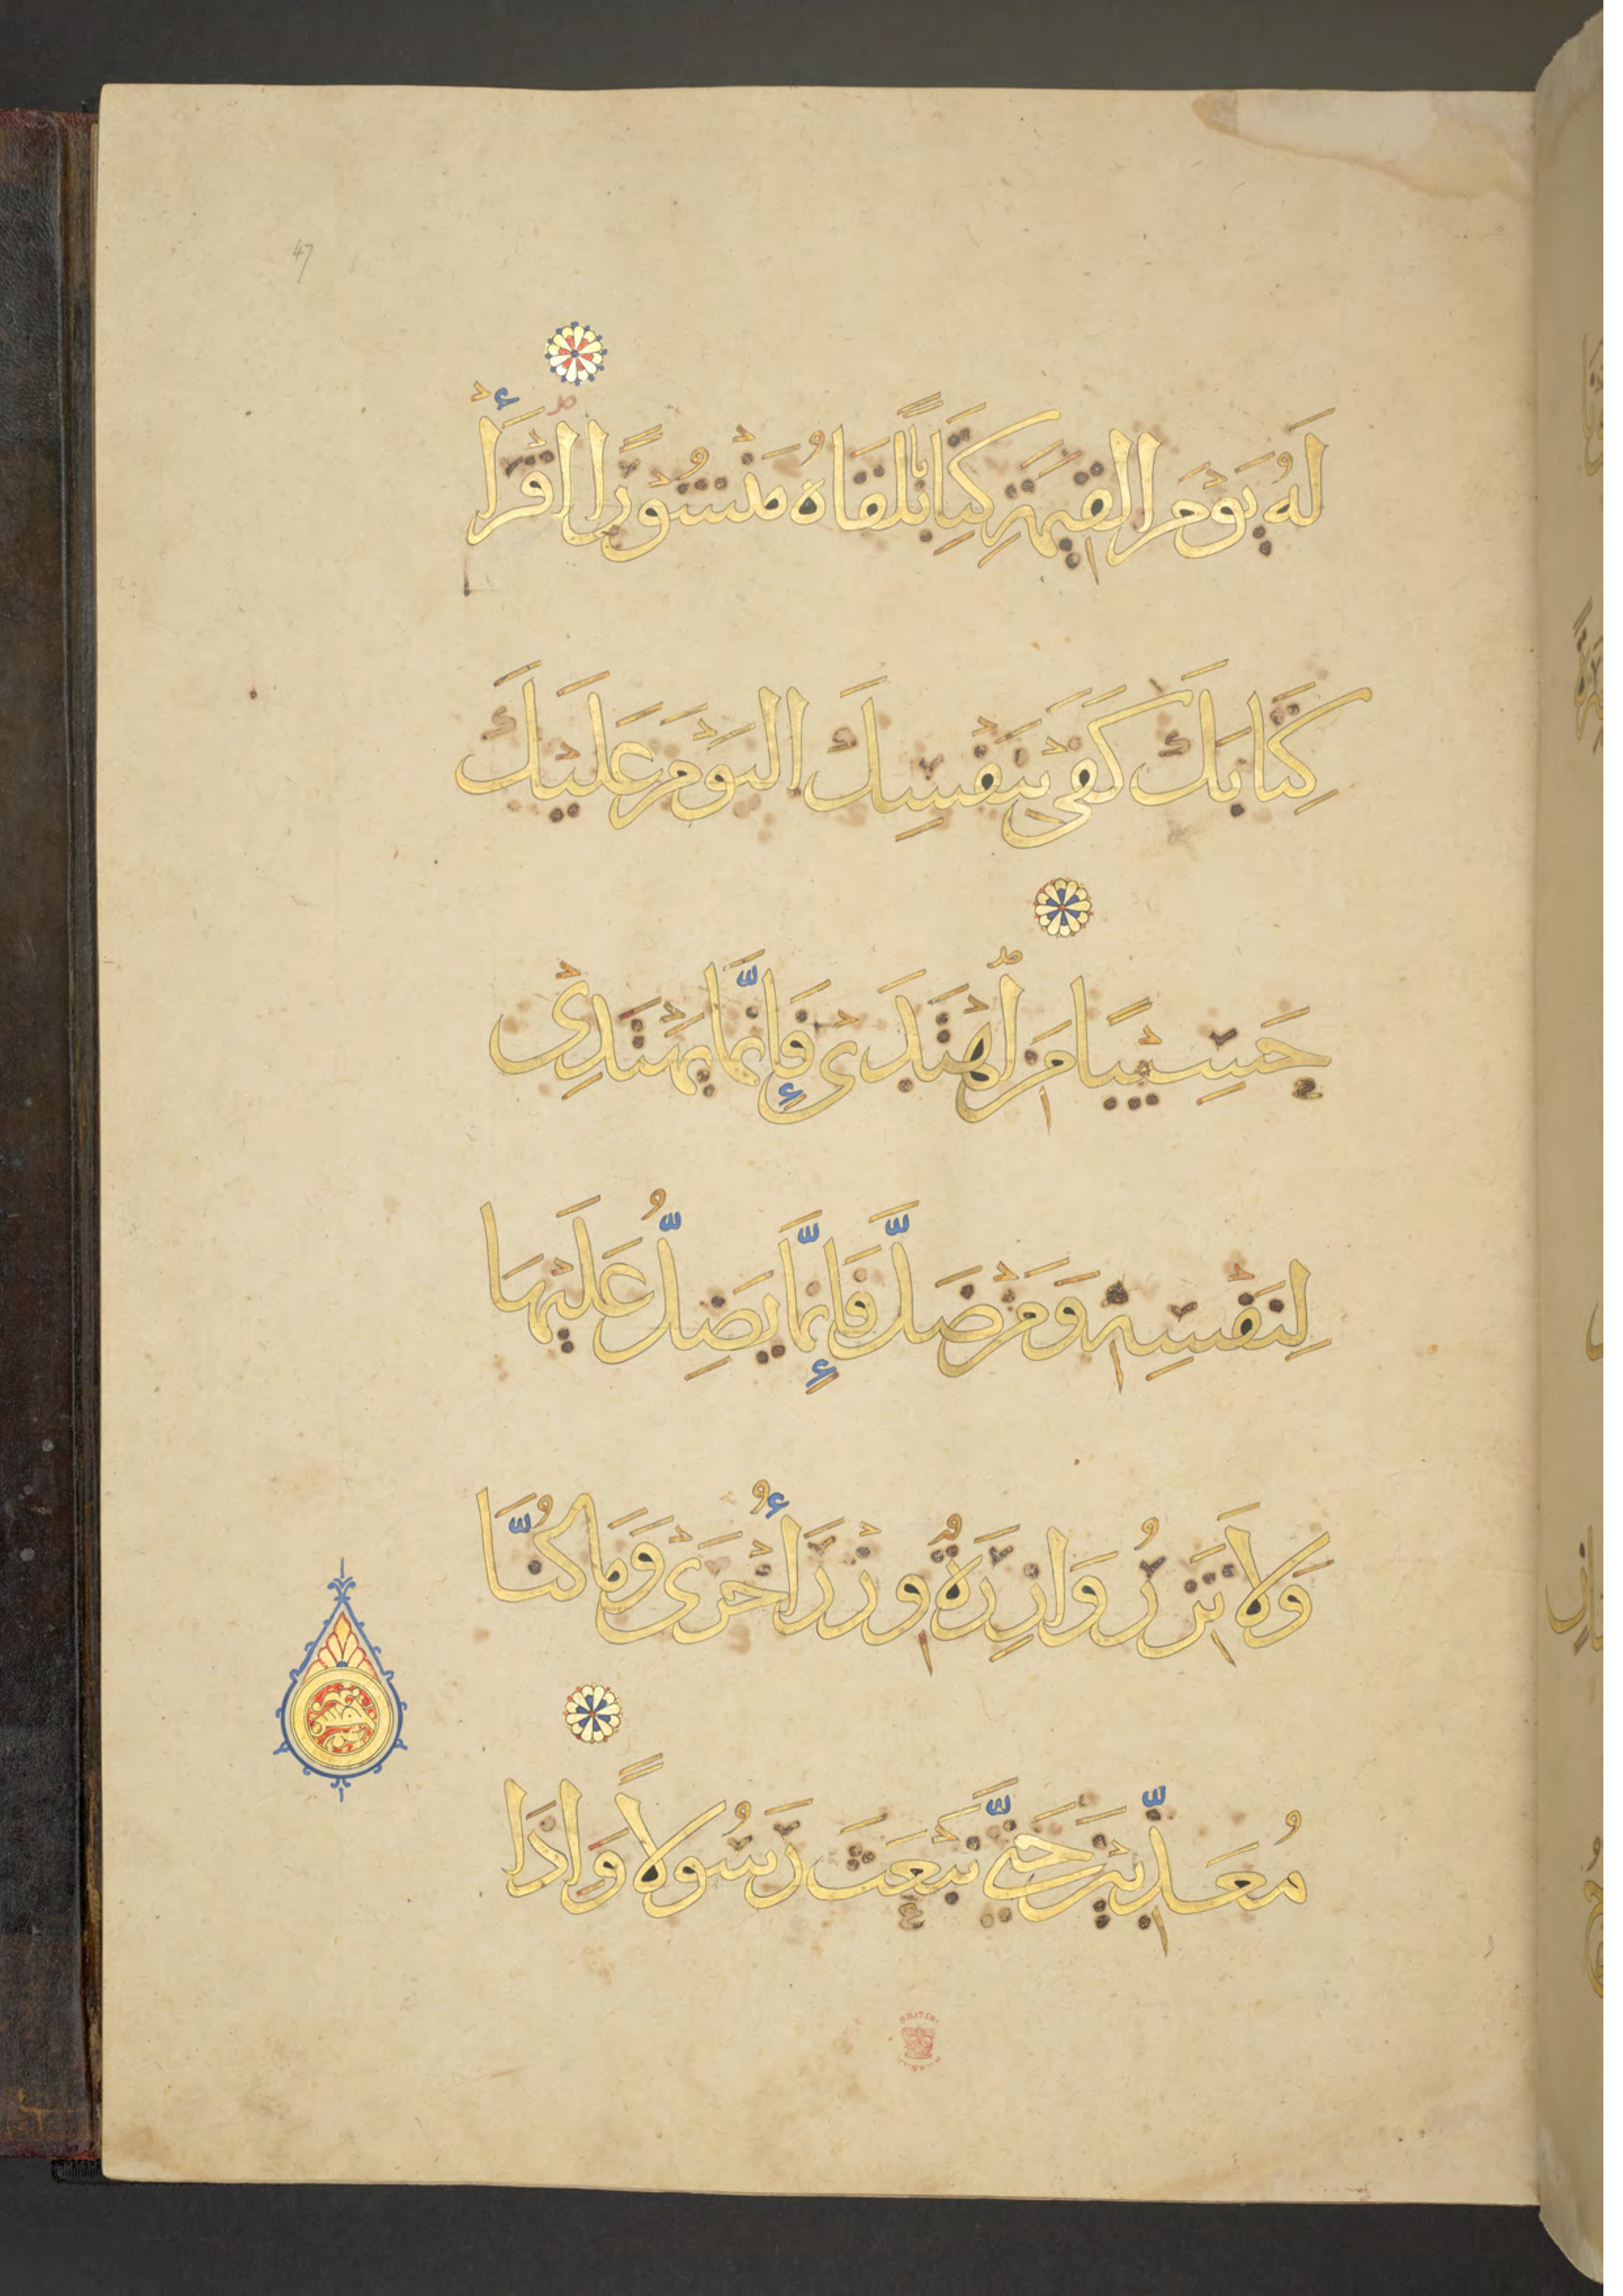 47
لَهُ يَوْمَ الْقِيمَةِ كِتَابًا يَلْقَاهُ مَنْشُوْرًا اقْرَأْ
كِتَابَكَ كَفَىْ بِنَفْسِكَ الْيَوْمَ عَلَيْكَ
حَسِيْبًا مَنِ اهْتَدَىْ فَإِنَّمَا يَهْتَدِىْ
لِنَفْسِهِ وَمَنْ ضَلَّ فَإِنَّمَا يَضِلُّ عَلَيْهَا
وَلَا تَزِرُ وَازِرَةٌ وِزْرَ أُخْرَىْ وَمَا كُنَّا
مُعَذِّبِيْنَ حَتَّى نَبْعَثَ رَسُوْلًا وَاذَا
BRITISH MUSEUM